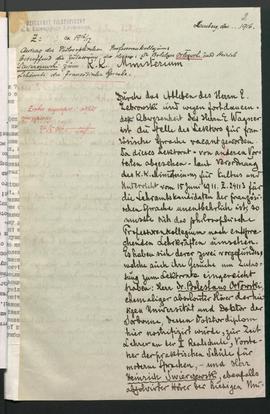 2
DZIEKANAT FILOZOFICZNY
Lemberg den 1916.
Z: ex 1915/6
Antrag des Philosophischen Professorenkollegiums
betreffend die Zulassung
K.K. Ministerium
Lektorate der französischen Sprache.
Durch das Ableben des Herrn E.
Zebrowski und wegen fortdauern-
der Abwesenheit des Herrn J. Wagner
ist die Stelle des Lektors für
französische Sprache vacant geworden.
Da dieses Lektorat - von anderen Vor-
teilen abgesehen - laut Verordnung
des K.K. Ministeriums für Kultus und
Unterricht vom 15 Juni 1911. Z. 2413 für
die Lehramtskandidaten der französi-
schen Sprache unentbehrlich ist, so
musste sich das philosophische
Professorenkollegium nach entspre-
chenden Lehrkräften umsehen.
Es haben sich derer zwei vorgefunden,
welche auch ihre Gesuche um Zulass-
ung zum Lektorate eingereicht
haben: Herr Dr. Boleslaus
ehemaliger absoluter Hörer der hie-
sigen Universität und Doktor der
Sorbonne, deren Doktordiplom
hier nostrifiziert wurde, zur Zeit
Lehrer an der I Realschule, Vorste-
her der praktischen Schule für
moderne Sprachen, - und Herr
Heinrich ebenfalls
absolvirter Hörer der hiesigen Uni-